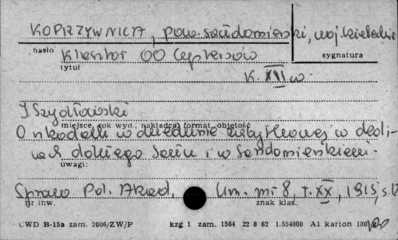 KOPRZYWNICA, pow. sandomierski, woj. kieleckie
hasło Klasztor OO Cystersów sygnatura
tytuł
k. XII w.
J Szydłowski
miejsce, rok wyd., nakładca, format, objętość
O szkodach w dziedzinie zabytkowej w dolinach dolnego Sanu i w Sandomierskiem.
uwagi:
Spraw. Pol. Akad. Um. nr 8, T. XX, 1915, s.
nr inw. znak klas.
CWD B-15a zam. 2006/ZW/P kzg 1 zam. 1564 22 8 62 1.554000 A1 karton